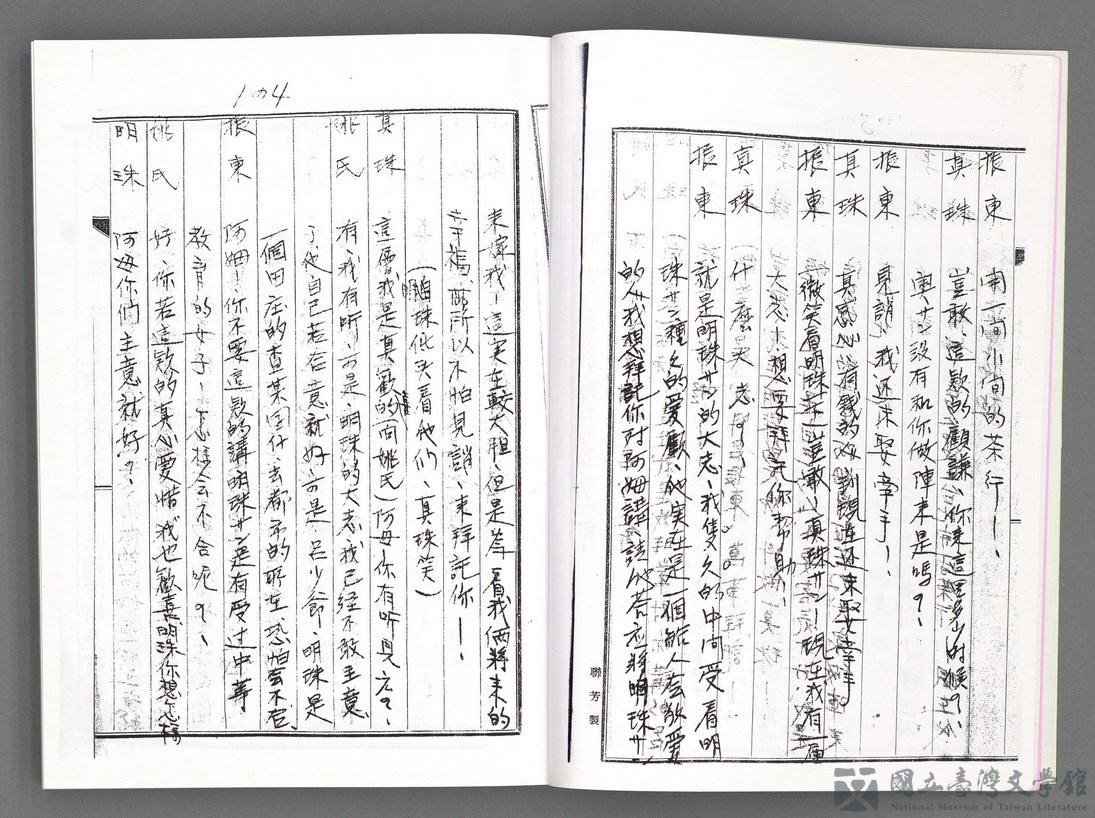 振東 開一間小間的茶行！、
真珠 豈敢、這款的顧謙、你晓這裡多少时候？、
奧サン沒有和你做陣来是嗎？、
振東 見誚、我还未娶牽手！、
真珠 真感心、有錢的人到現在还未娶牽手。
振東 微笑看明珠 不豈敢、真珠サン！現在我有一層
大志 想要拜託你幫助！
真珠 什麼大志
振東 就是明珠サン的大志、我隻久的中间受着明
珠サン種久的愛顧、他実在是一個能人去敬愛
的人、我想拜託你对阿姆講 請他答应將明珠サン
104
来嫁我！這実在較大胆、但是為着我俩將来的
幸福 所以不怕見誚、来拜託你！、
（明珠低头看他们、真珠笑）
真珠 這層我是真歡喜的（向姚氏）阿母你有听見么？、
姚氏 有、我有听、可是、明珠的大志、我已经不敢主意
了他自己若在意就好、可是 呂少爺、明珠是
一個田庄的查某囝仔、去都市的所在恐怕會不合、
振東 阿姆！你不要這款的講明珠サン是有受过中等
教育的女子！、怎樣会不合呢？、
姚氏 好、你若這款的真心愛惜、我也歡喜、明珠你想怎樣
明珠 阿母你们主意就好？、
聯芳製
國立臺灣文學館
National Museum of Taiwan Literature